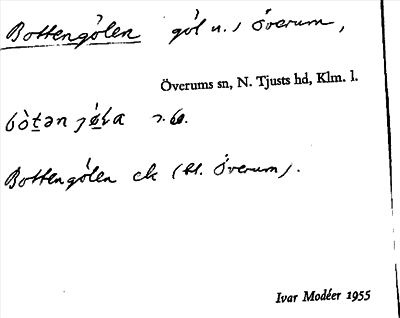 Bottengölen göl n. , Överum,
Överums sn, N. Tjusts hd, Klm. l.
Bottengölen ek (bl. Överum).
Ivar Modéer 1955